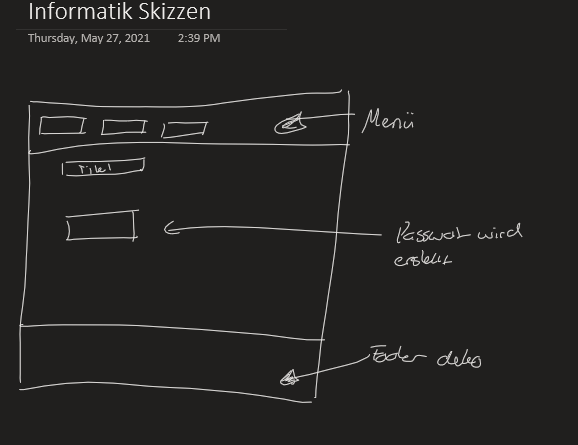 Informatik Skizzen
Thursday, May 27, 2021 2:39 PM
Menü
Titel
Passwort wird
erstellt
Footer deko